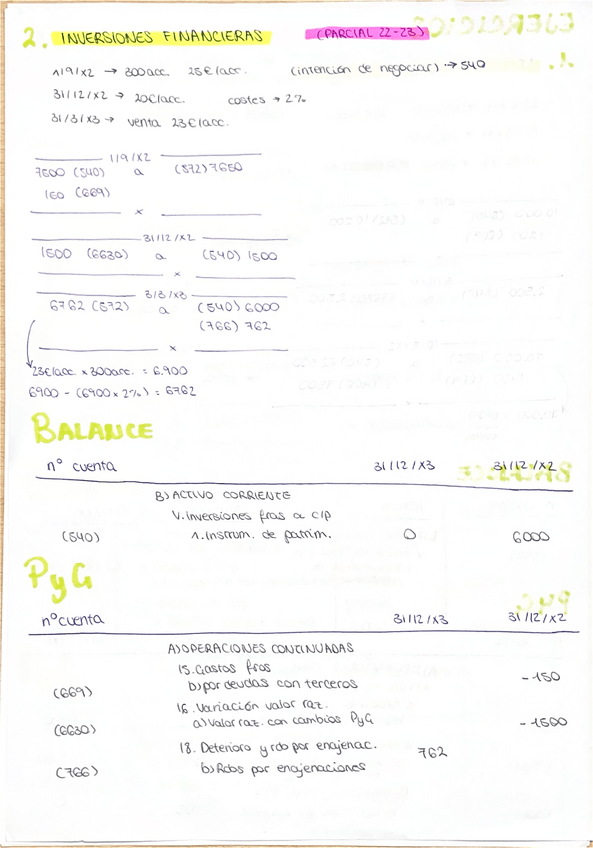 2. INVERSIONES FINANCIERAS (PARCIAL 22-23)
1/9/X2 → 300acc. 25€/acc. (intención de negociar) → 540
31/12/X2 → 20€/acc. costes → 2%
31/3/X3 → venta 23€/acc.
1/9/X2
7500 (540) a (572) 7650
150 (669)
x
31/12/X2
1500 (6630) a (540) 1500
x
3/3/X3
6762 (572) a (540) 6000
(766) 762
x
23€/acc x 300acc. = 6.900
6900 - (6900 x 2%) = 6762
BALANCE
nº cuenta 31/12/X3 31/12/X2
B) ACTIVO CORRIENTE
V. Inversiones fras a c/p
(540) 1. Instrum. de patrim. 0 6000
PyG
nº cuenta 31/12/X3 31/12/X2
A) OPERACIONES CONTINUADAS
15. Gastos fros
(669) b) por deudas con terceros -150
16. Variación valor raz.
(6630) a) Valor raz. con cambios PyG -1500
18. Deterioro y rdo por enajenac. 762
(766) b) Rdos por enajenaciones